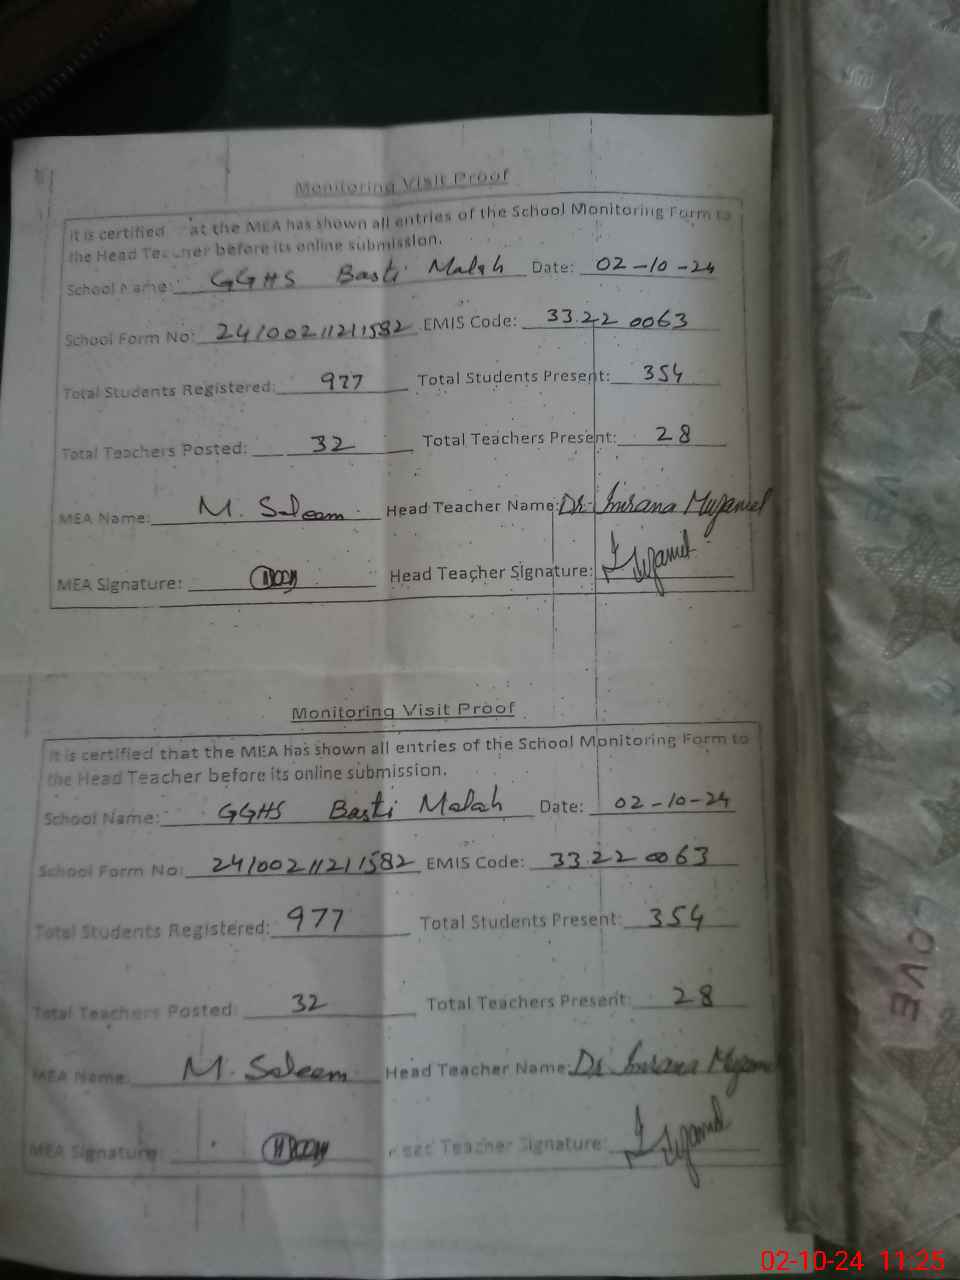 Monitoring Visit Proof
It is certified at the MEA has shown all entries of the School Monitoring Form to
the Head Teacher before its online submission.
School Name: GGHS Basti Malah Date: 02-10-24
School Form No: 2410021121582 EMIS Code: 33220063
Total Students Registered: 977 Total Students Present: 354
Total Teachers Posted: 32 Total Teachers Present: 28
MEA Name: M. Saleem Head Teacher Name: Dr. Imrana
MEA Signature: Head Teacher Signature:
Monitoring Visit Proof
It is certified that the MEA has shown all entries of the School Monitoring Form to
the Head Teacher before its online submission.
School Name: GGHS Basti Malah Date: 02-10-24
School Form No: 2410021121582 EMIS Code: 33220063
Total Students Registered: 977 Total Students Present: 354
Total Teachers Posted: 32 Total Teachers Present: 28
MEA Name: M. Saleem Head Teacher Name: Dr Imrana
MEA Signature: Teacher Signature:
LOVE
02-10-24 11:25